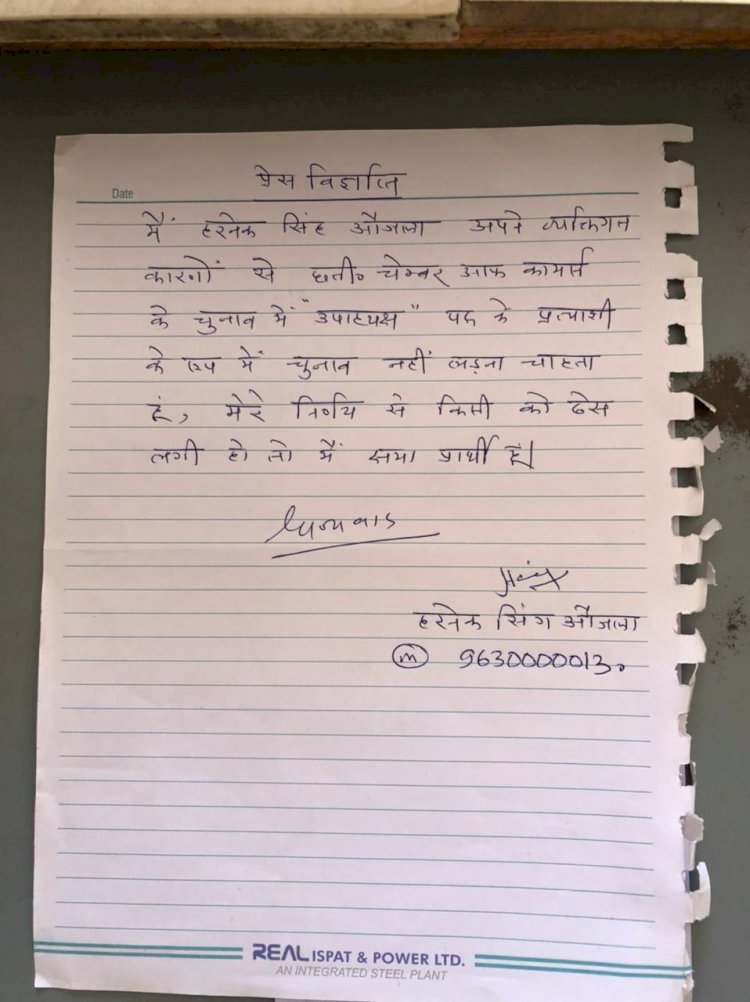 Date
प्रेस विज्ञप्ति
मैं हरनेक सिंह औजला अपने व्यक्तिगत
कारणों से छत्ती० चेम्बर आफ कामर्स
के चुनाव में "उपाध्यक्ष" पद के प्रत्याशी
के रूप में चुनाव नहीं लड़ना चाहता
हूं, मेरे निर्णय से किसी को ठेस
लगी हो तो मैं क्षमा प्रार्थी हूँ।
धन्यवाद
हरनेक सिंग औजला
m 9630000013.
REAL ISPAT & POWER LTD.
AN INTEGRATED STEEL PLANT